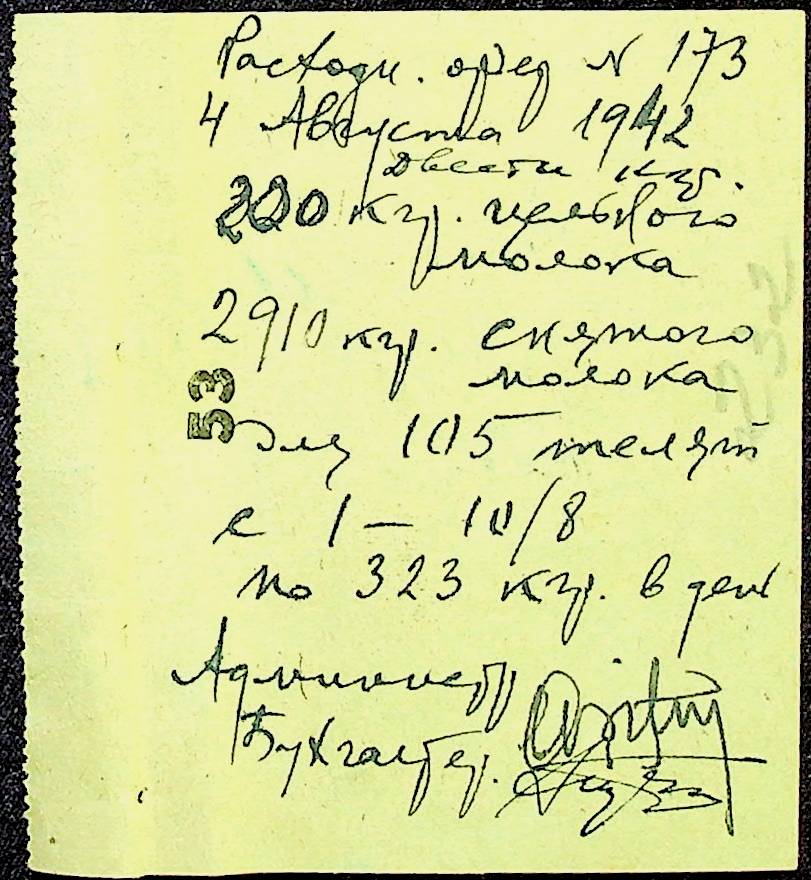 Расходн. ордер N 173
4 Августа 1942
Двести кгр.
200 кгр. цельного
молока
2910 кгр. снятого
молока
53
для 105 телят
с 1 — 10/8
по 323 кгр. в день
Администр
Бухгалтер.